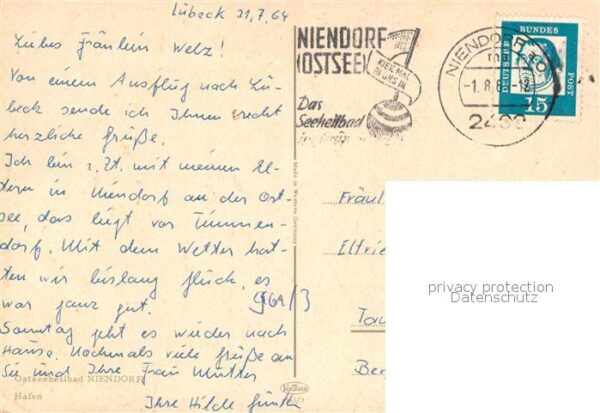 Lübeck 31.7.64
Liebes Fräulein Welz!
Von einem Ausflug nach Lü-
beck sende ich Ihnen recht
herzliche Grüße.
Ich bin z. Zt. mit meinen El-
tern in Niendorf an der Ost-
see, das liegt vor Timmen-
dorf. Mit dem Wetter hat-
ten wir bislang Glück, es
war ganz gut.
Sonntag geht es wieder nach
Hause. Nochmals viele Grüße an
Sie und Ihre Frau Mutter
Ihre Hilde Günth
Ostseeheilbad NIENDORF
Hafen
NIENDORF
(OSTSEE)
KIEK MAL
Das
Seeheilbad
NIENDORF
-1.8.6 -12
DEUTSCHE
BUNDES
POST
15
Made in Western Germany
Fräul
Elfrie
Tau
Ber
privacy protection
Datenschutz